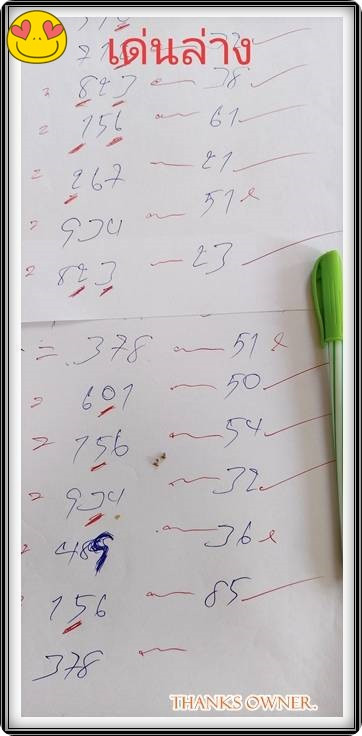 เด่นล่าง
= 823 — 38 ✓
= 156 — 61 ✓
= 267 — 21 ✓
= 934 — 51 x
= 823 — 23 ✓
= 378 — 51 x
= 601 — 50 ✓
= 156 — 54 ✓
= 934 — 32 ✓
= 489 — 36 x
= 156 — 85 ✓
378 —
THANKS OWNER.